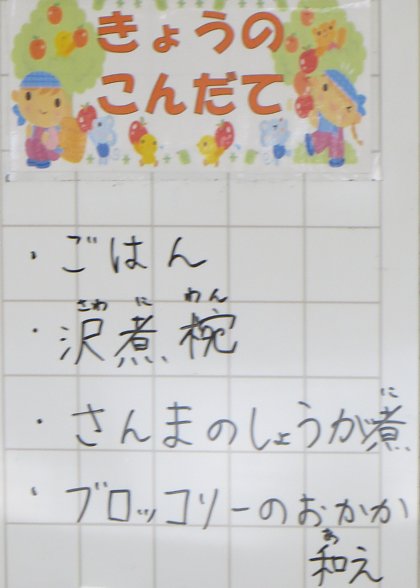 きょうの
こんだて
・ごはん
さわ に わん
・沢煮椀
に
・さんまのしょうが煮
・ブロッコリーのおかか
あ
和え